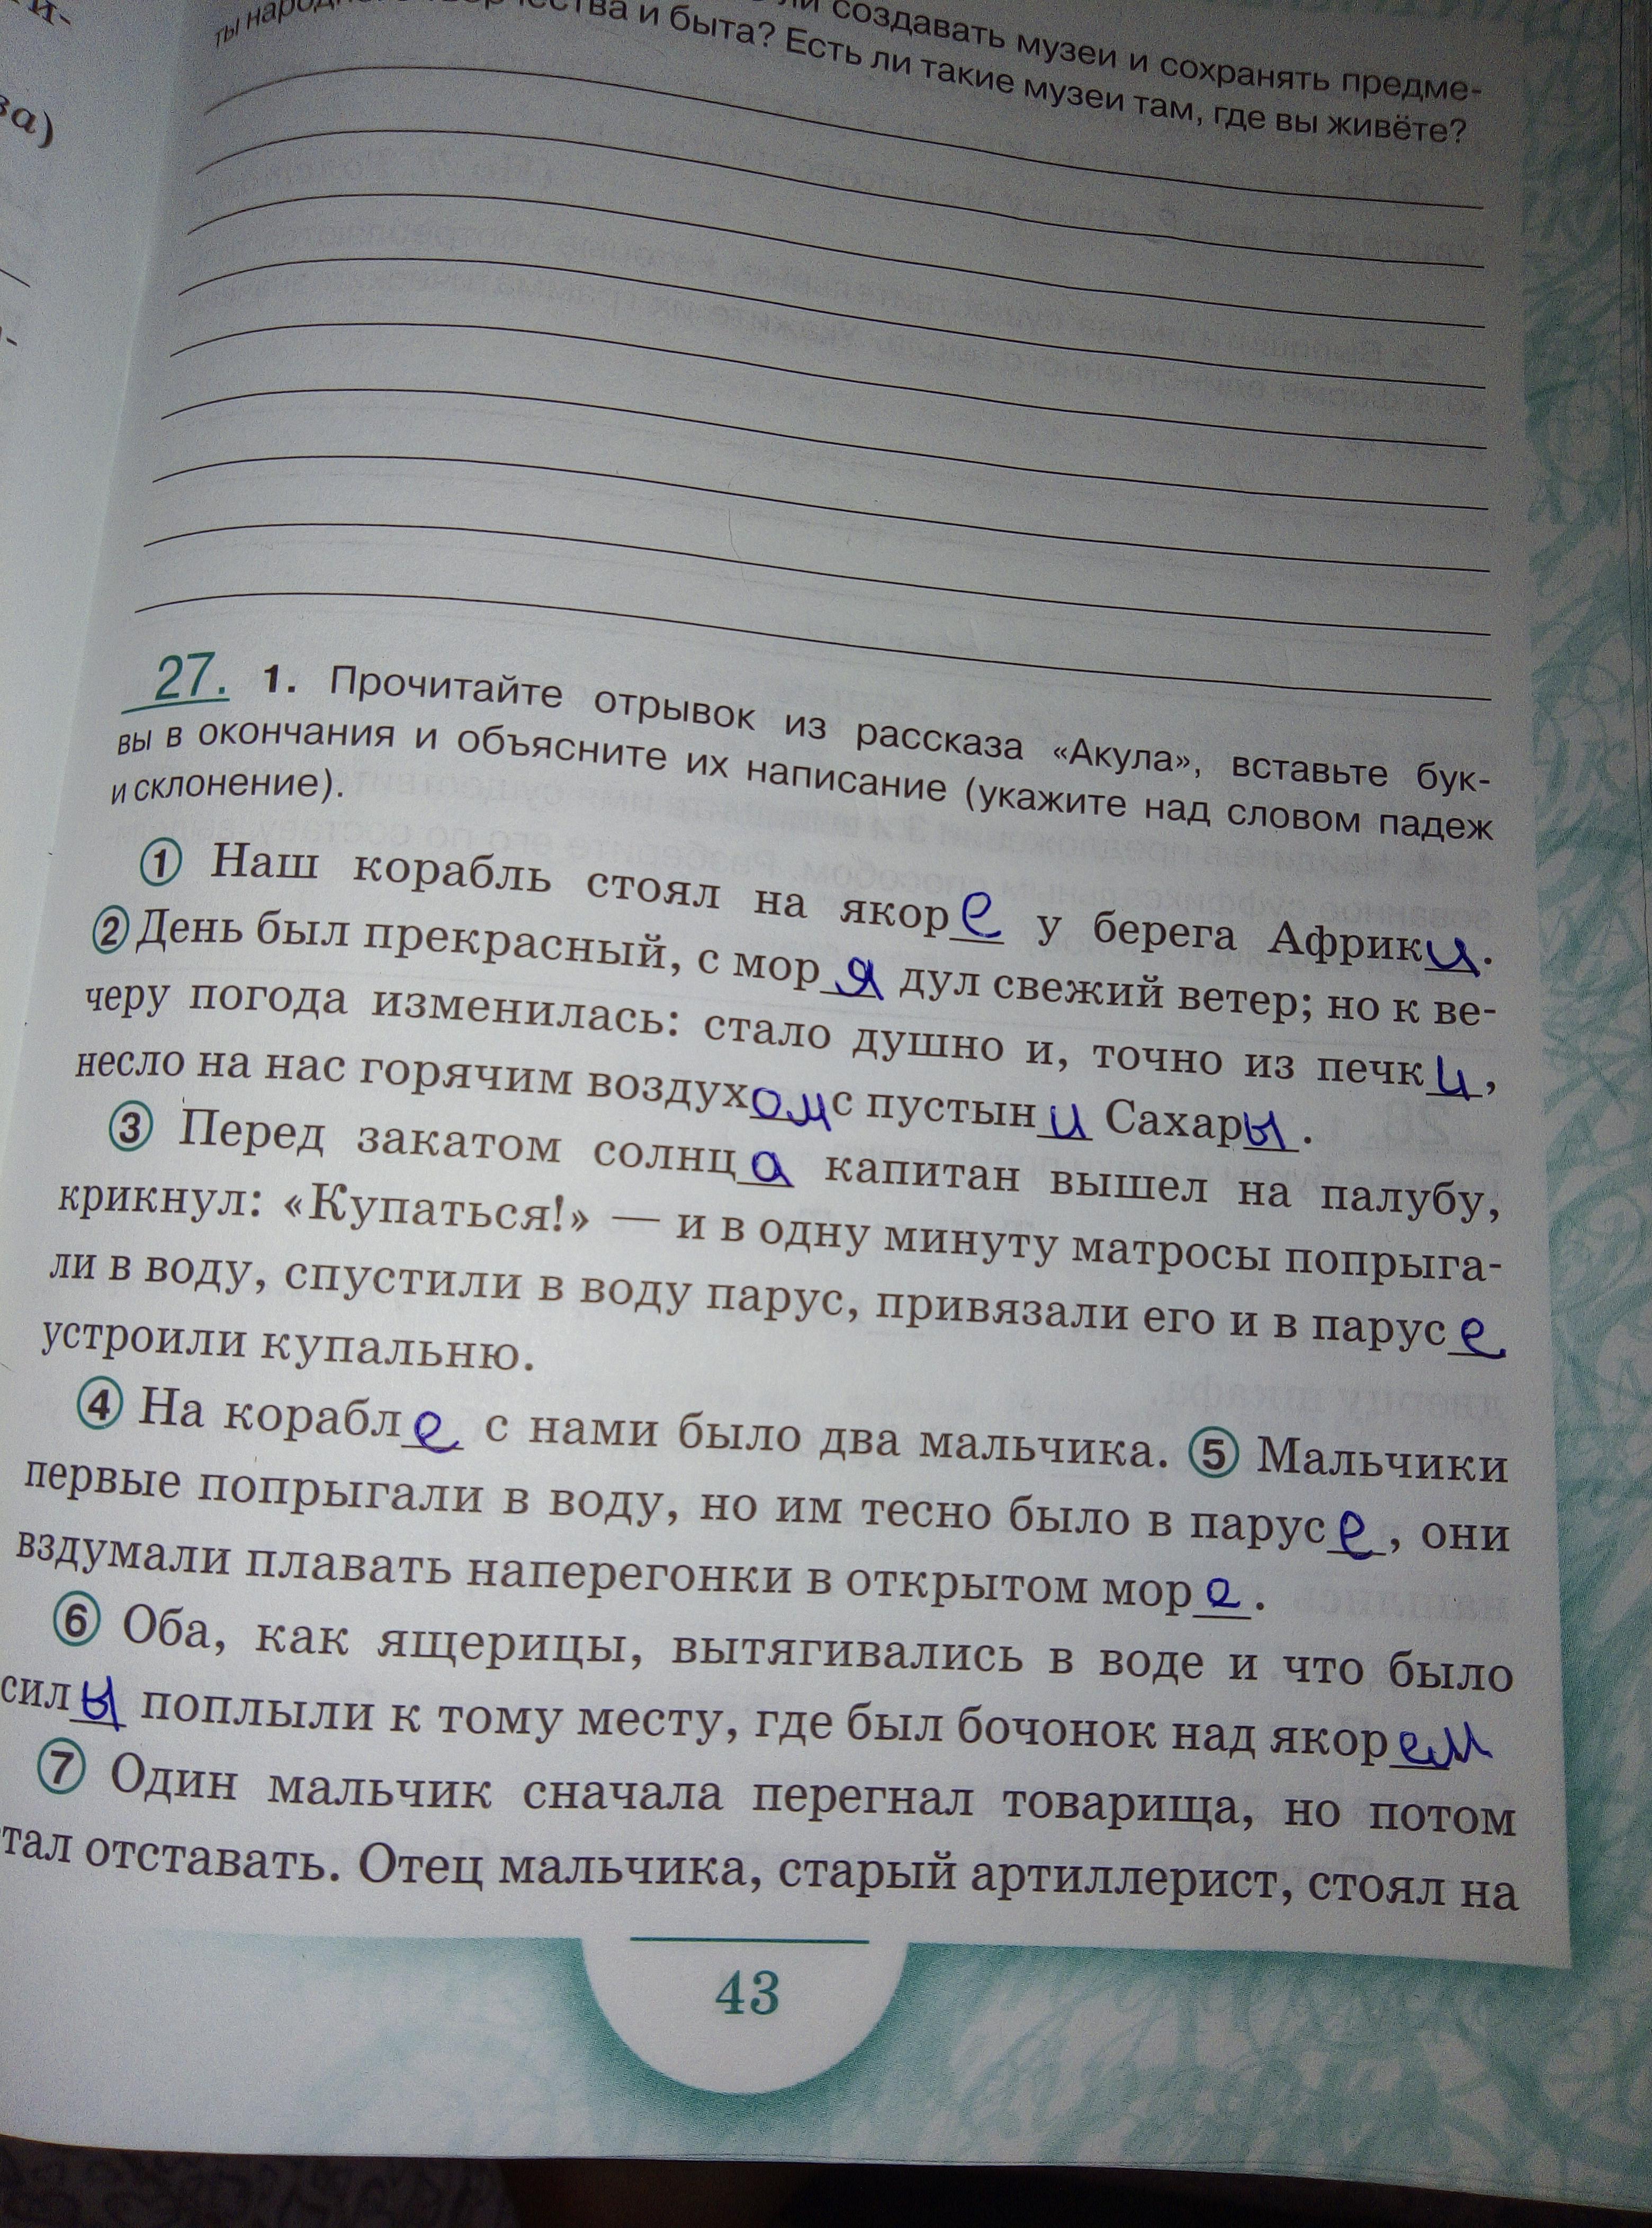 и-
ва)
создавать музеи и сохранять предме-
ты народного творчества и быта? Есть ли такие музеи там, где вы живёте?
27. 1. Прочитайте отрывок из рассказа «Акула», вставьте бук-
вы в окончания и объясните их написание (укажите над словом падеж
и склонение).
1 Наш корабль стоял на якоре у берега Африки.
2 День был прекрасный, с моря дул свежий ветер; но к ве-
черу погода изменилась: стало душно и, точно из печки,
несло на нас горячим воздухом с пустыни Сахары.
3 Перед закатом солнца капитан вышел на палубу,
крикнул: «Купаться!» — и в одну минуту матросы попрыга-
ли в воду, спустили в воду парус, привязали его и в парусе
устроили купальню.
4 На корабле с нами было два мальчика. 5 Мальчики
первые попрыгали в воду, но им тесно было в парусе, они
вздумали плавать наперегонки в открытом море.
6 Оба, как ящерицы, вытягивались в воде и что было
силы поплыли к тому месту, где был бочонок над якорем
7 Один мальчик сначала перегнал товарища, но потом
тал отставать. Отец мальчика, старый артиллерист, стоял на
43